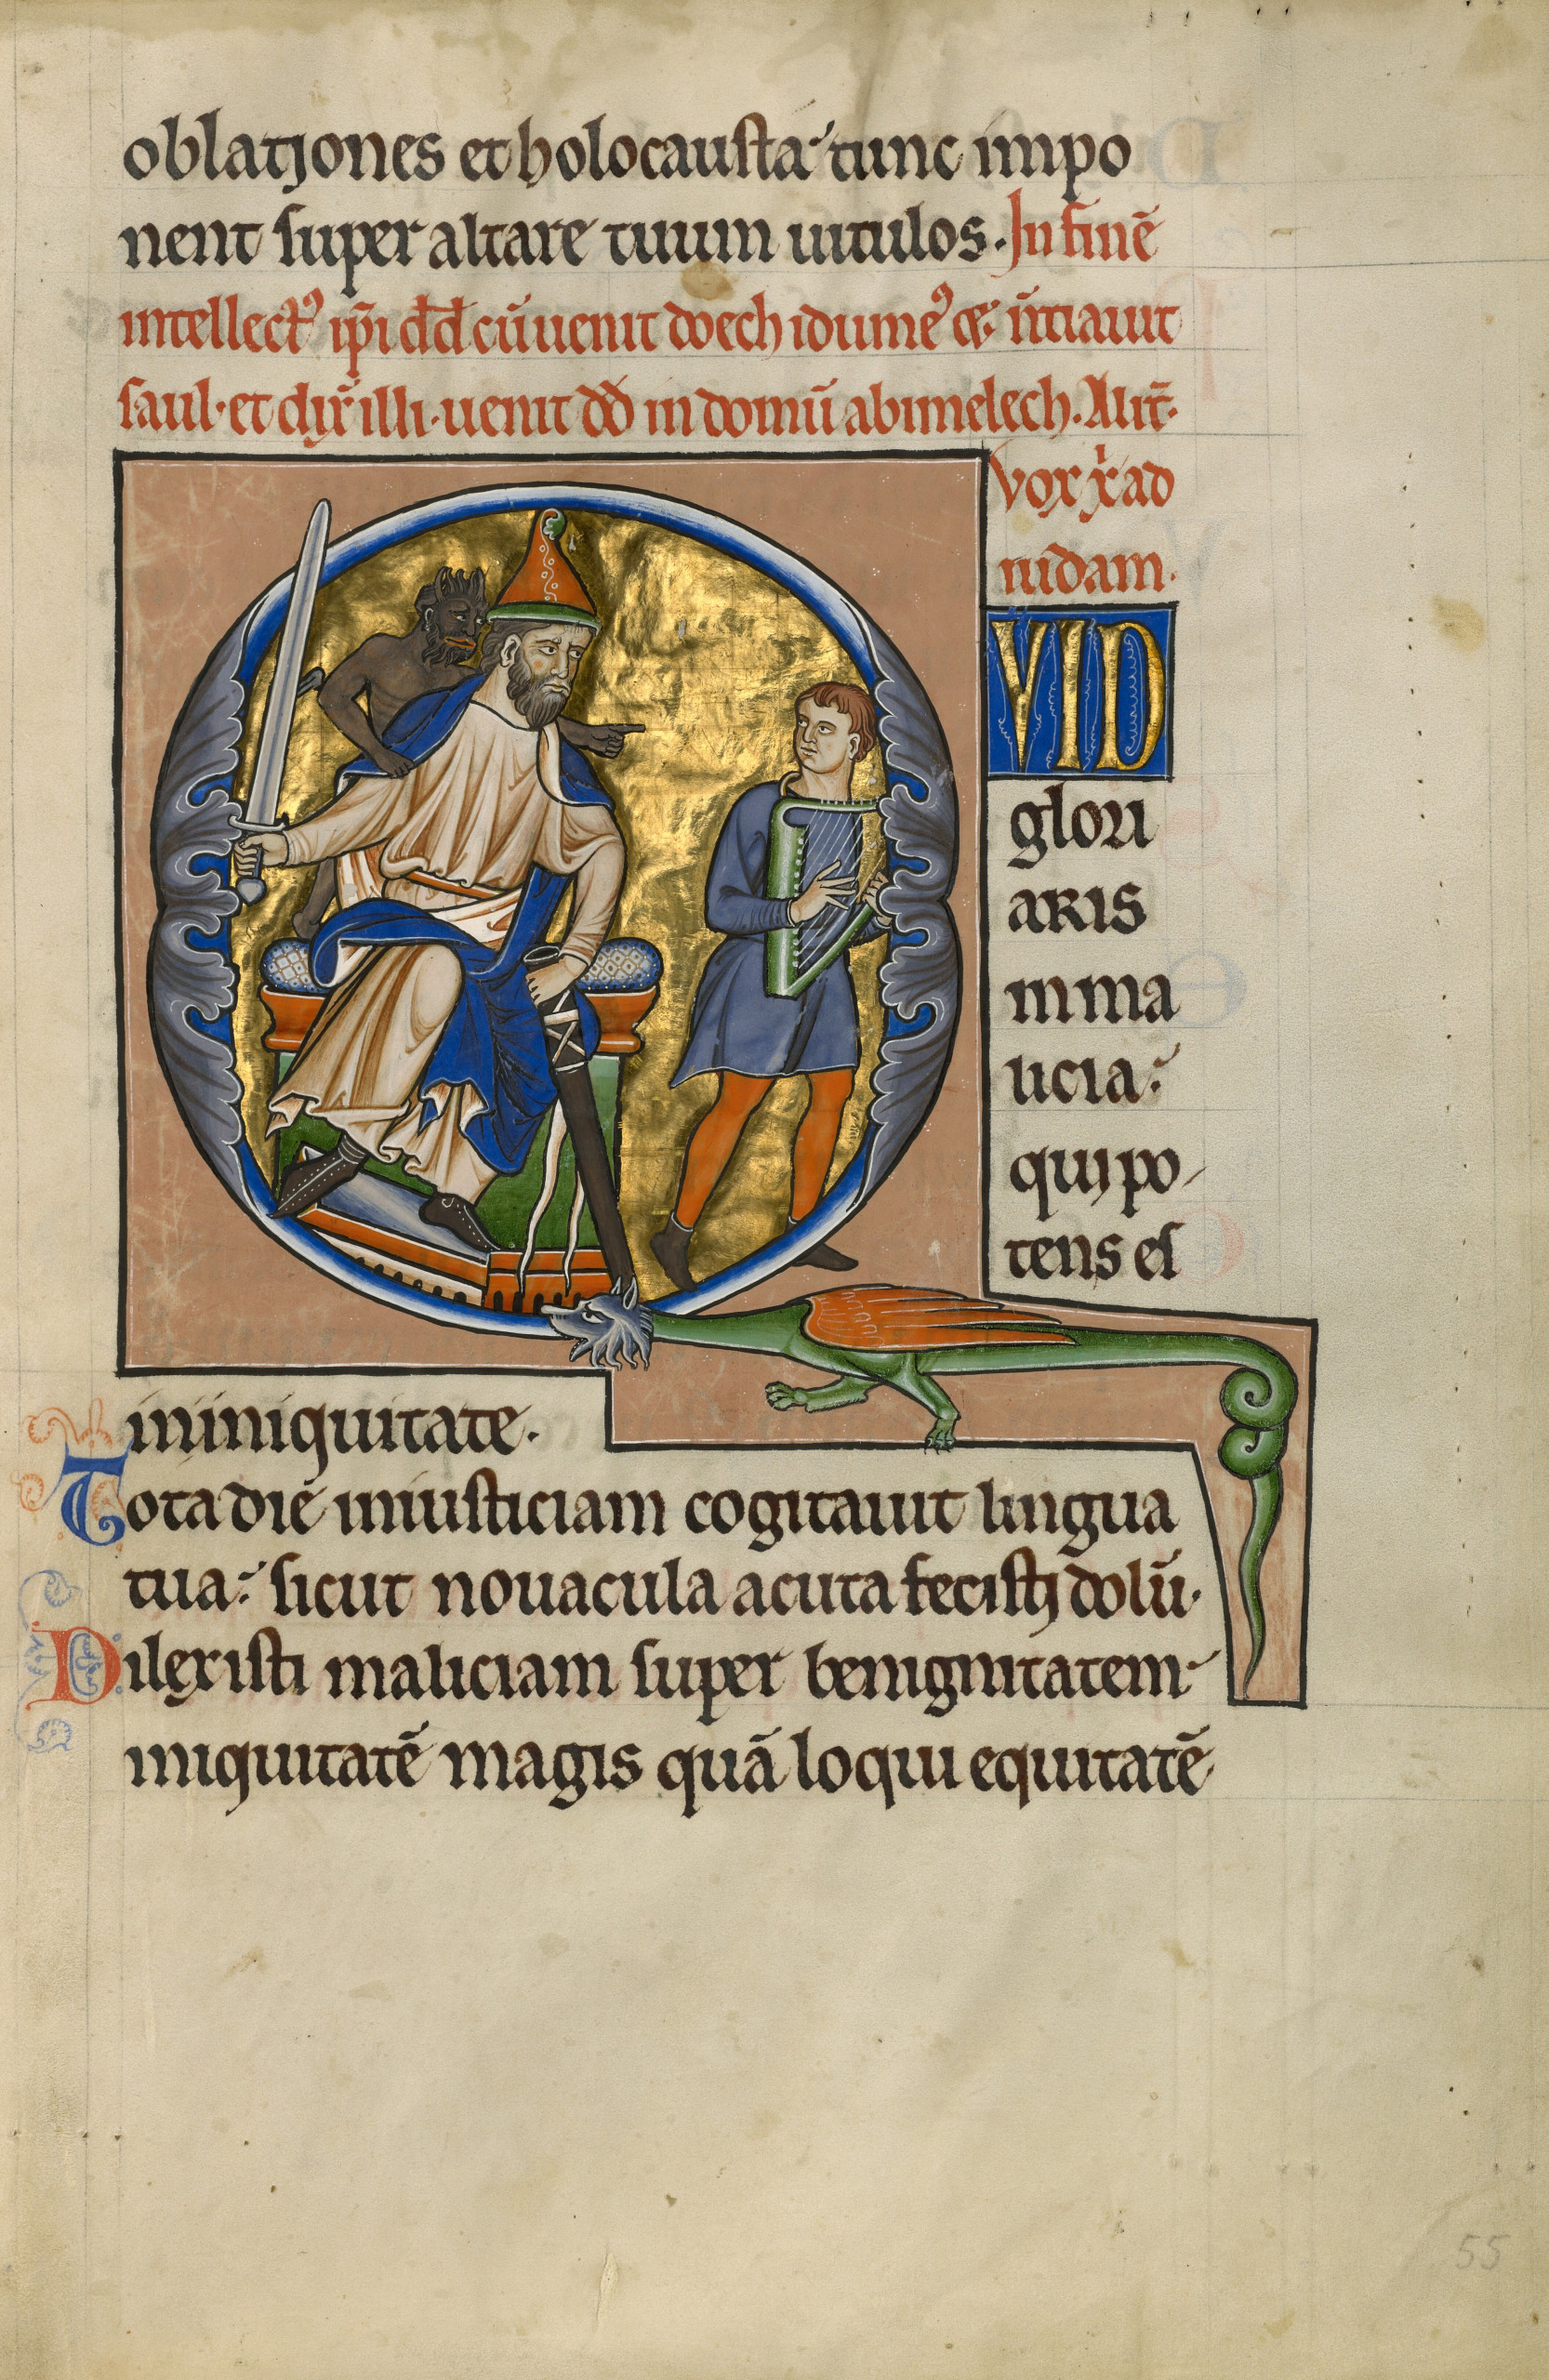 oblationes et holocausta tunc impo
nent super altare tuum uitulos. In finē
intellectꝰ ip̄i dd̄ cū uenit doech idumeꝰ et n̄tiauit
saul. et dix̄ illi. uenit dd̄ in domū abimelech. Alit̄.
vox xi ad
iudam.
QVID
glori
aris
in ma
licia:
qui po
tens es
in iniquitate.
Tota die iniusticiam cogitauit lingua
tua: sicut nouacula acuta fecisti dolū.
Dilexisti maliciam super benignitatem
iniquitatē magis quā loqui equitatē
55